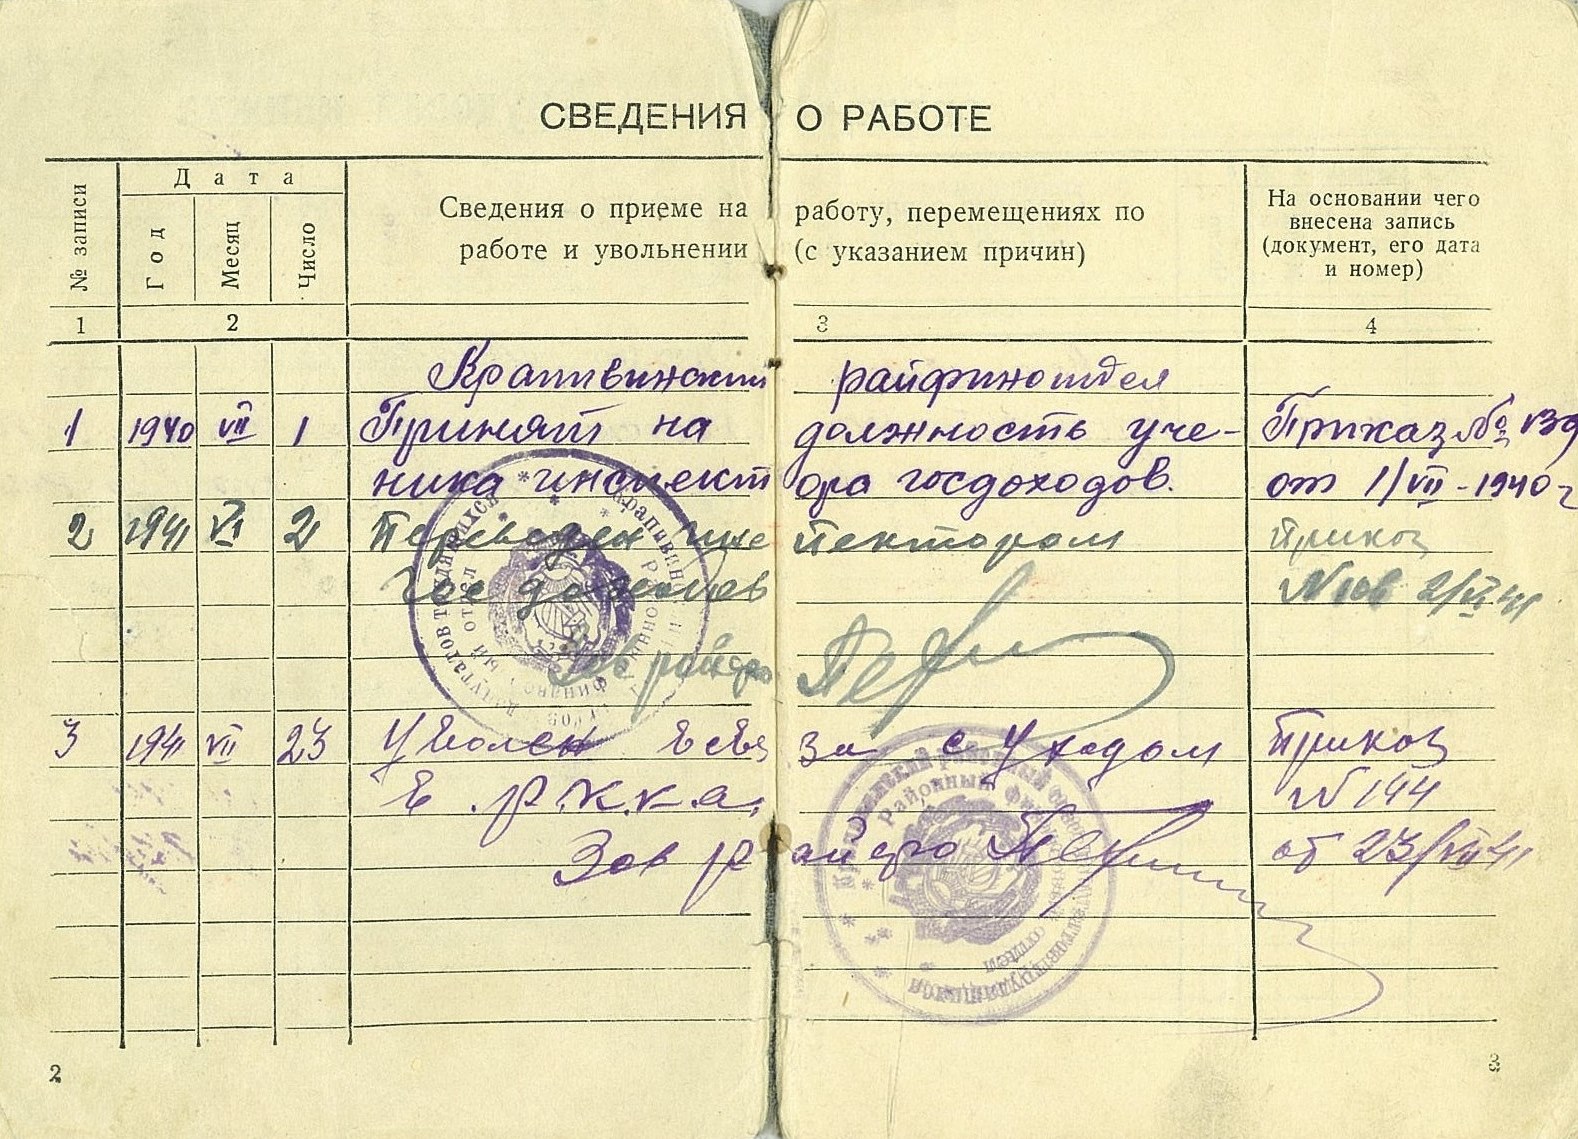 СВЕДЕНИЯ О РАБОТЕ
№ записи
Дата
Год
Месяц
Число
Сведения о приеме на работу, перемещениях по
работе и увольнении (с указанием причин)
На основании чего
внесена запись
(документ, его дата
и номер)
1 2 3 4
Крапивинский райфинотдел
1 1940 VII 1 Принят на должность уче- Приказ №
ника инспектора госдоходов. от 1/VII-1940г
2 1941 VI 2 Переведен инспектором Приказ
гос доходов 2/VI 41
Зав райфо
3 1941 VII 23 Уволен в связи с уходом Приказ
в р.к.к.а. N 144
Зав райфо от 23/VII 41
2
3